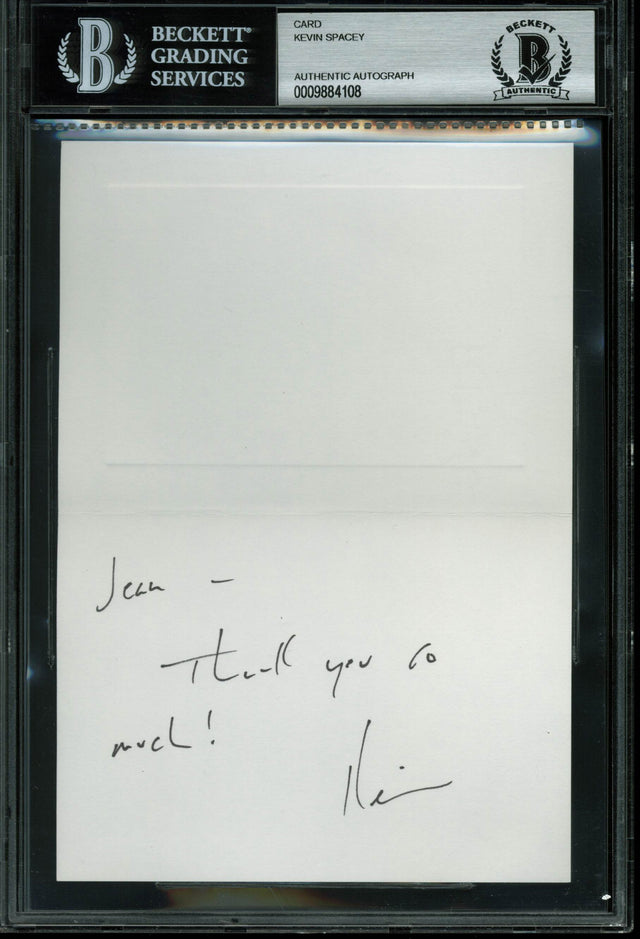 BECKETT®
GRADING
SERVICES
CARD
KEVIN SPACEY
AUTHENTIC AUTOGRAPH
0009884108
BECKETT
B
AUTHENTIC
Jean –
Thank you so
much!
Kevin